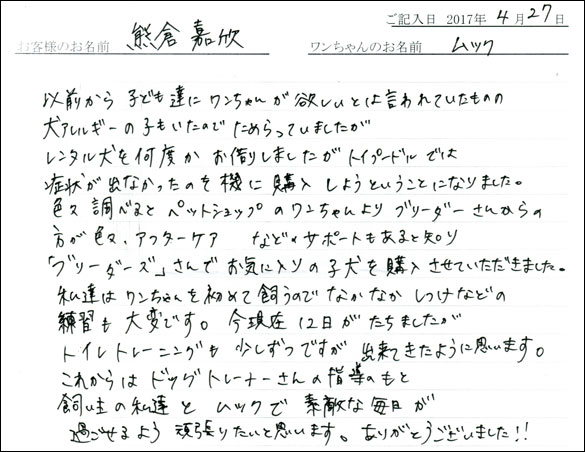 ご記入日 2017年 4月27日
お客様のお名前 熊倉 嘉欣 ワンちゃんのお名前 ムック
以前から 子ども達に ワンちゃんが 欲しいとは言われていたものの
犬アレルギーの子もいたので ためらっていましたが
レンタル犬を何度か お借りしましたが トイプードルでは
症状が出なかったのを機に 購入しようということになりました。
色々 調べると ペットショップの ワンちゃんより ブリーダーさんからの
方が色々、アフターケア などのサポートもあると知り
「ブリーダーズ」さんで お気に入りの子犬を 購入させていただきました。
私達は ワンちゃんを初めて飼うので なかなか しつけなどの
練習も大変です。 今現在 12日が たちましたが
トイレトレーニングも 少しずつですが 出来てきたように思います。
これからは ドッグトレーナーさんの指導のもと
飼い主の私達と ムックで 素敵な毎日が
過ごせるよう 頑張りたいと思います。 ありがとうございました!!